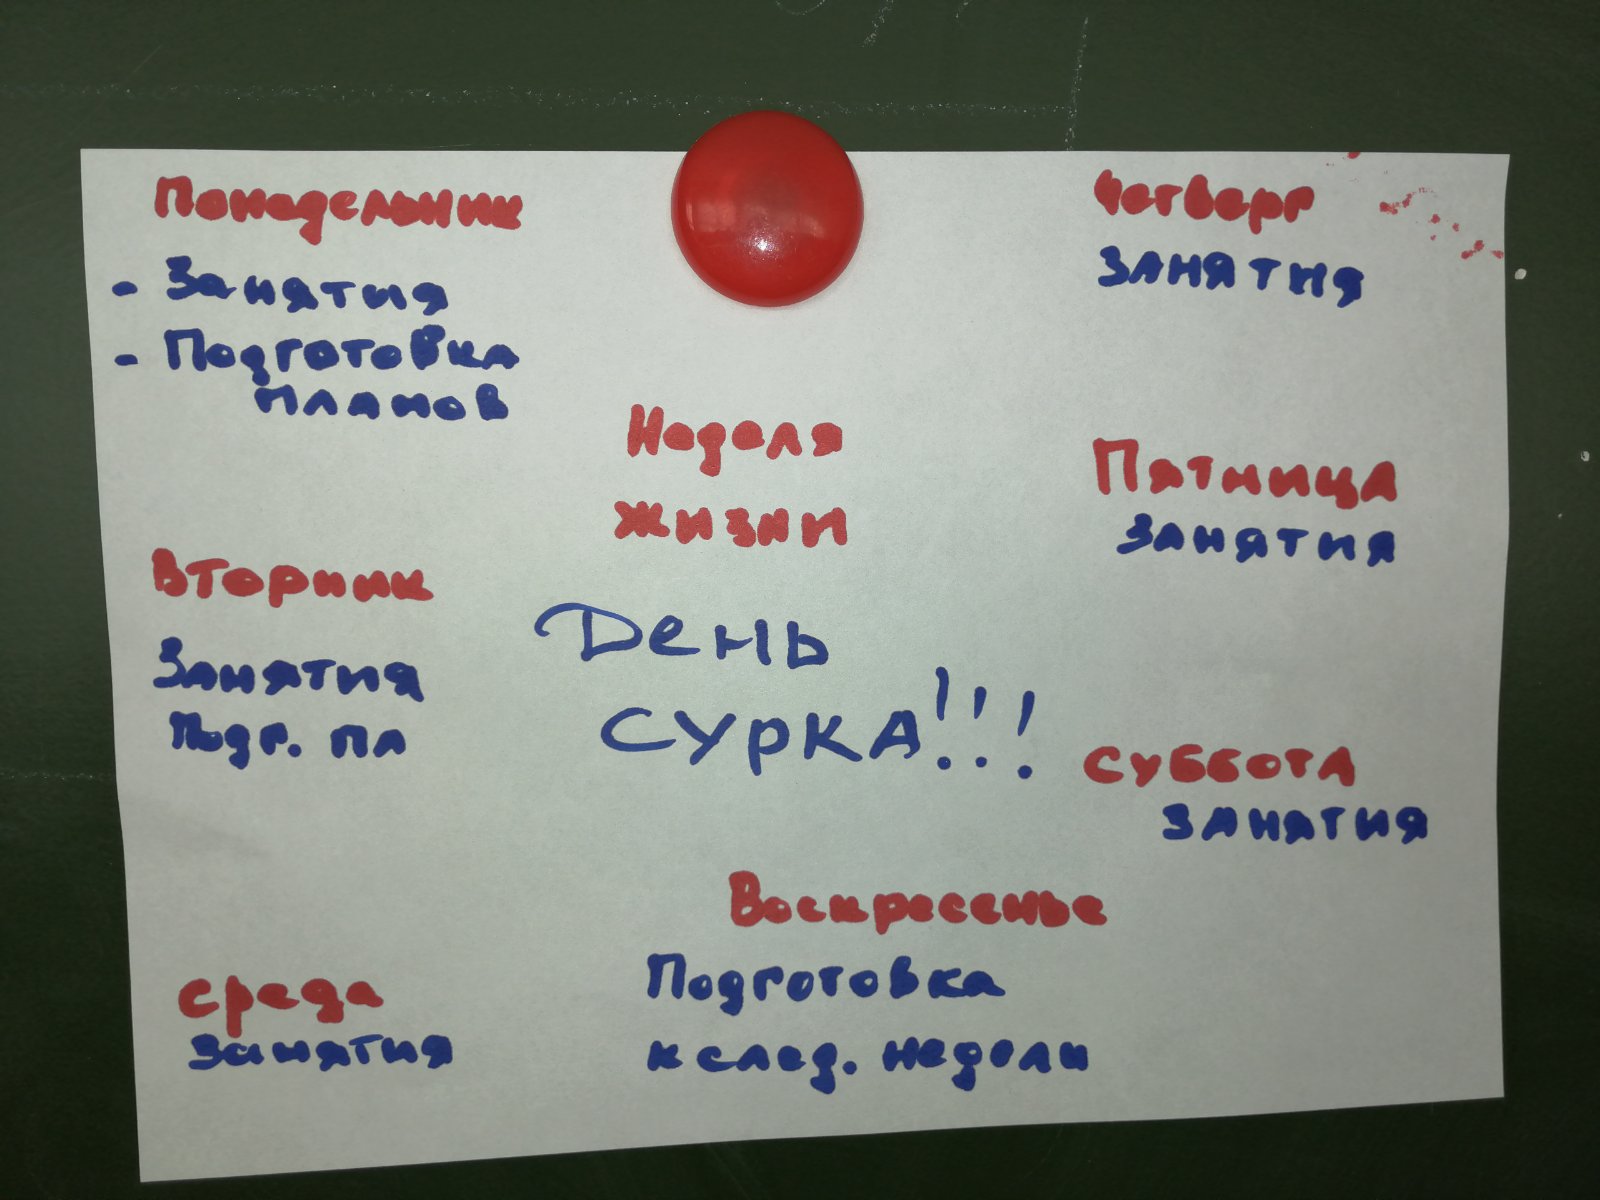 Понедельник
- Занятия
- Подготовка
планов
Вторник
Занятия
Подг. пл
Среда
Занятия
Неделя
жизни
День
сурка!!!
Четверг
Занятия
Пятница
Занятия
Суббота
Занятия
Воскресенье
Подготовка
к след. недели